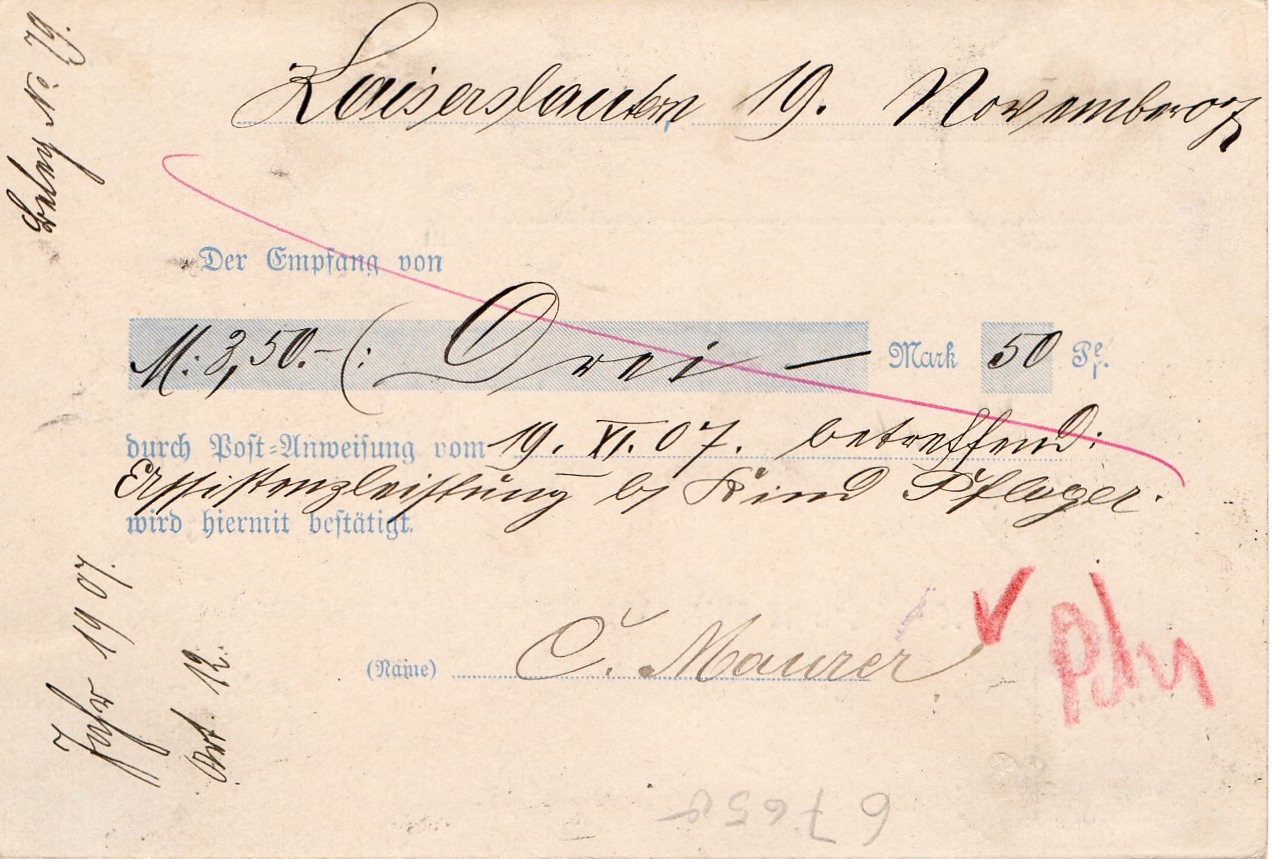 Beleg No 79.
Kaiserslautern 19. November 07
Der Empfang von
M: 3,50.- (: Drei — Mark 50 Pf.
durch Post-Anweisung vom 19. XI. 07. betreffend:
b/ Kind Pfleger.
wird hiermit bestätigt.
Jahr 1907.
Art. 12.
(Name) C. Maurer